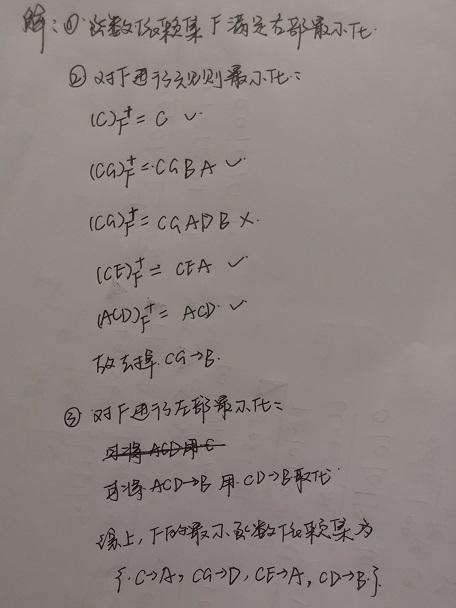 解：① 函数依赖集 F 满足右部最小化.
② 对F进行规则最小化：
(C)F⁺ = C ✓
(CG)F⁺ = CGBA ✓
(CG)F⁺ = CGADB ×.
(CE)F⁺ = CEA ✓
(ACD)F⁺ = ACD. ✓
故去掉 CG→B.
③ 对F进行左部最小化：
可将 ACD用C
可将 ACD→B 用 CD→B取代.
综上, F的最小函数依赖集为
{ C→A, CG→D, CE→A, CD→B }.